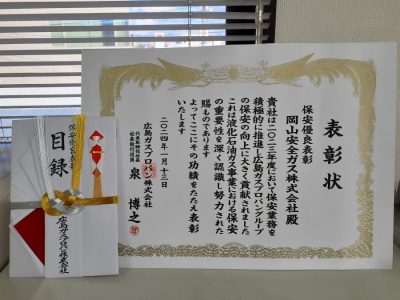 表彰状
保安優良表彰
岡山安全ガス株式会社殿
貴社は二〇二三年度において保安業務を
積極的に推進し広島ガスプロパングループ
の保安の向上に大きく貢献されました
これは液化石油ガス事業における保安
の重要性を深く認識し努力された
賜ものであります
よってここにその功績をたたえ表彰
いたします
二〇二四年一月十三日
広島ガスプロパン株式会社
代表取締役社長
社長執行役員
泉 博之
目録
広島ガスプロパン株式会社